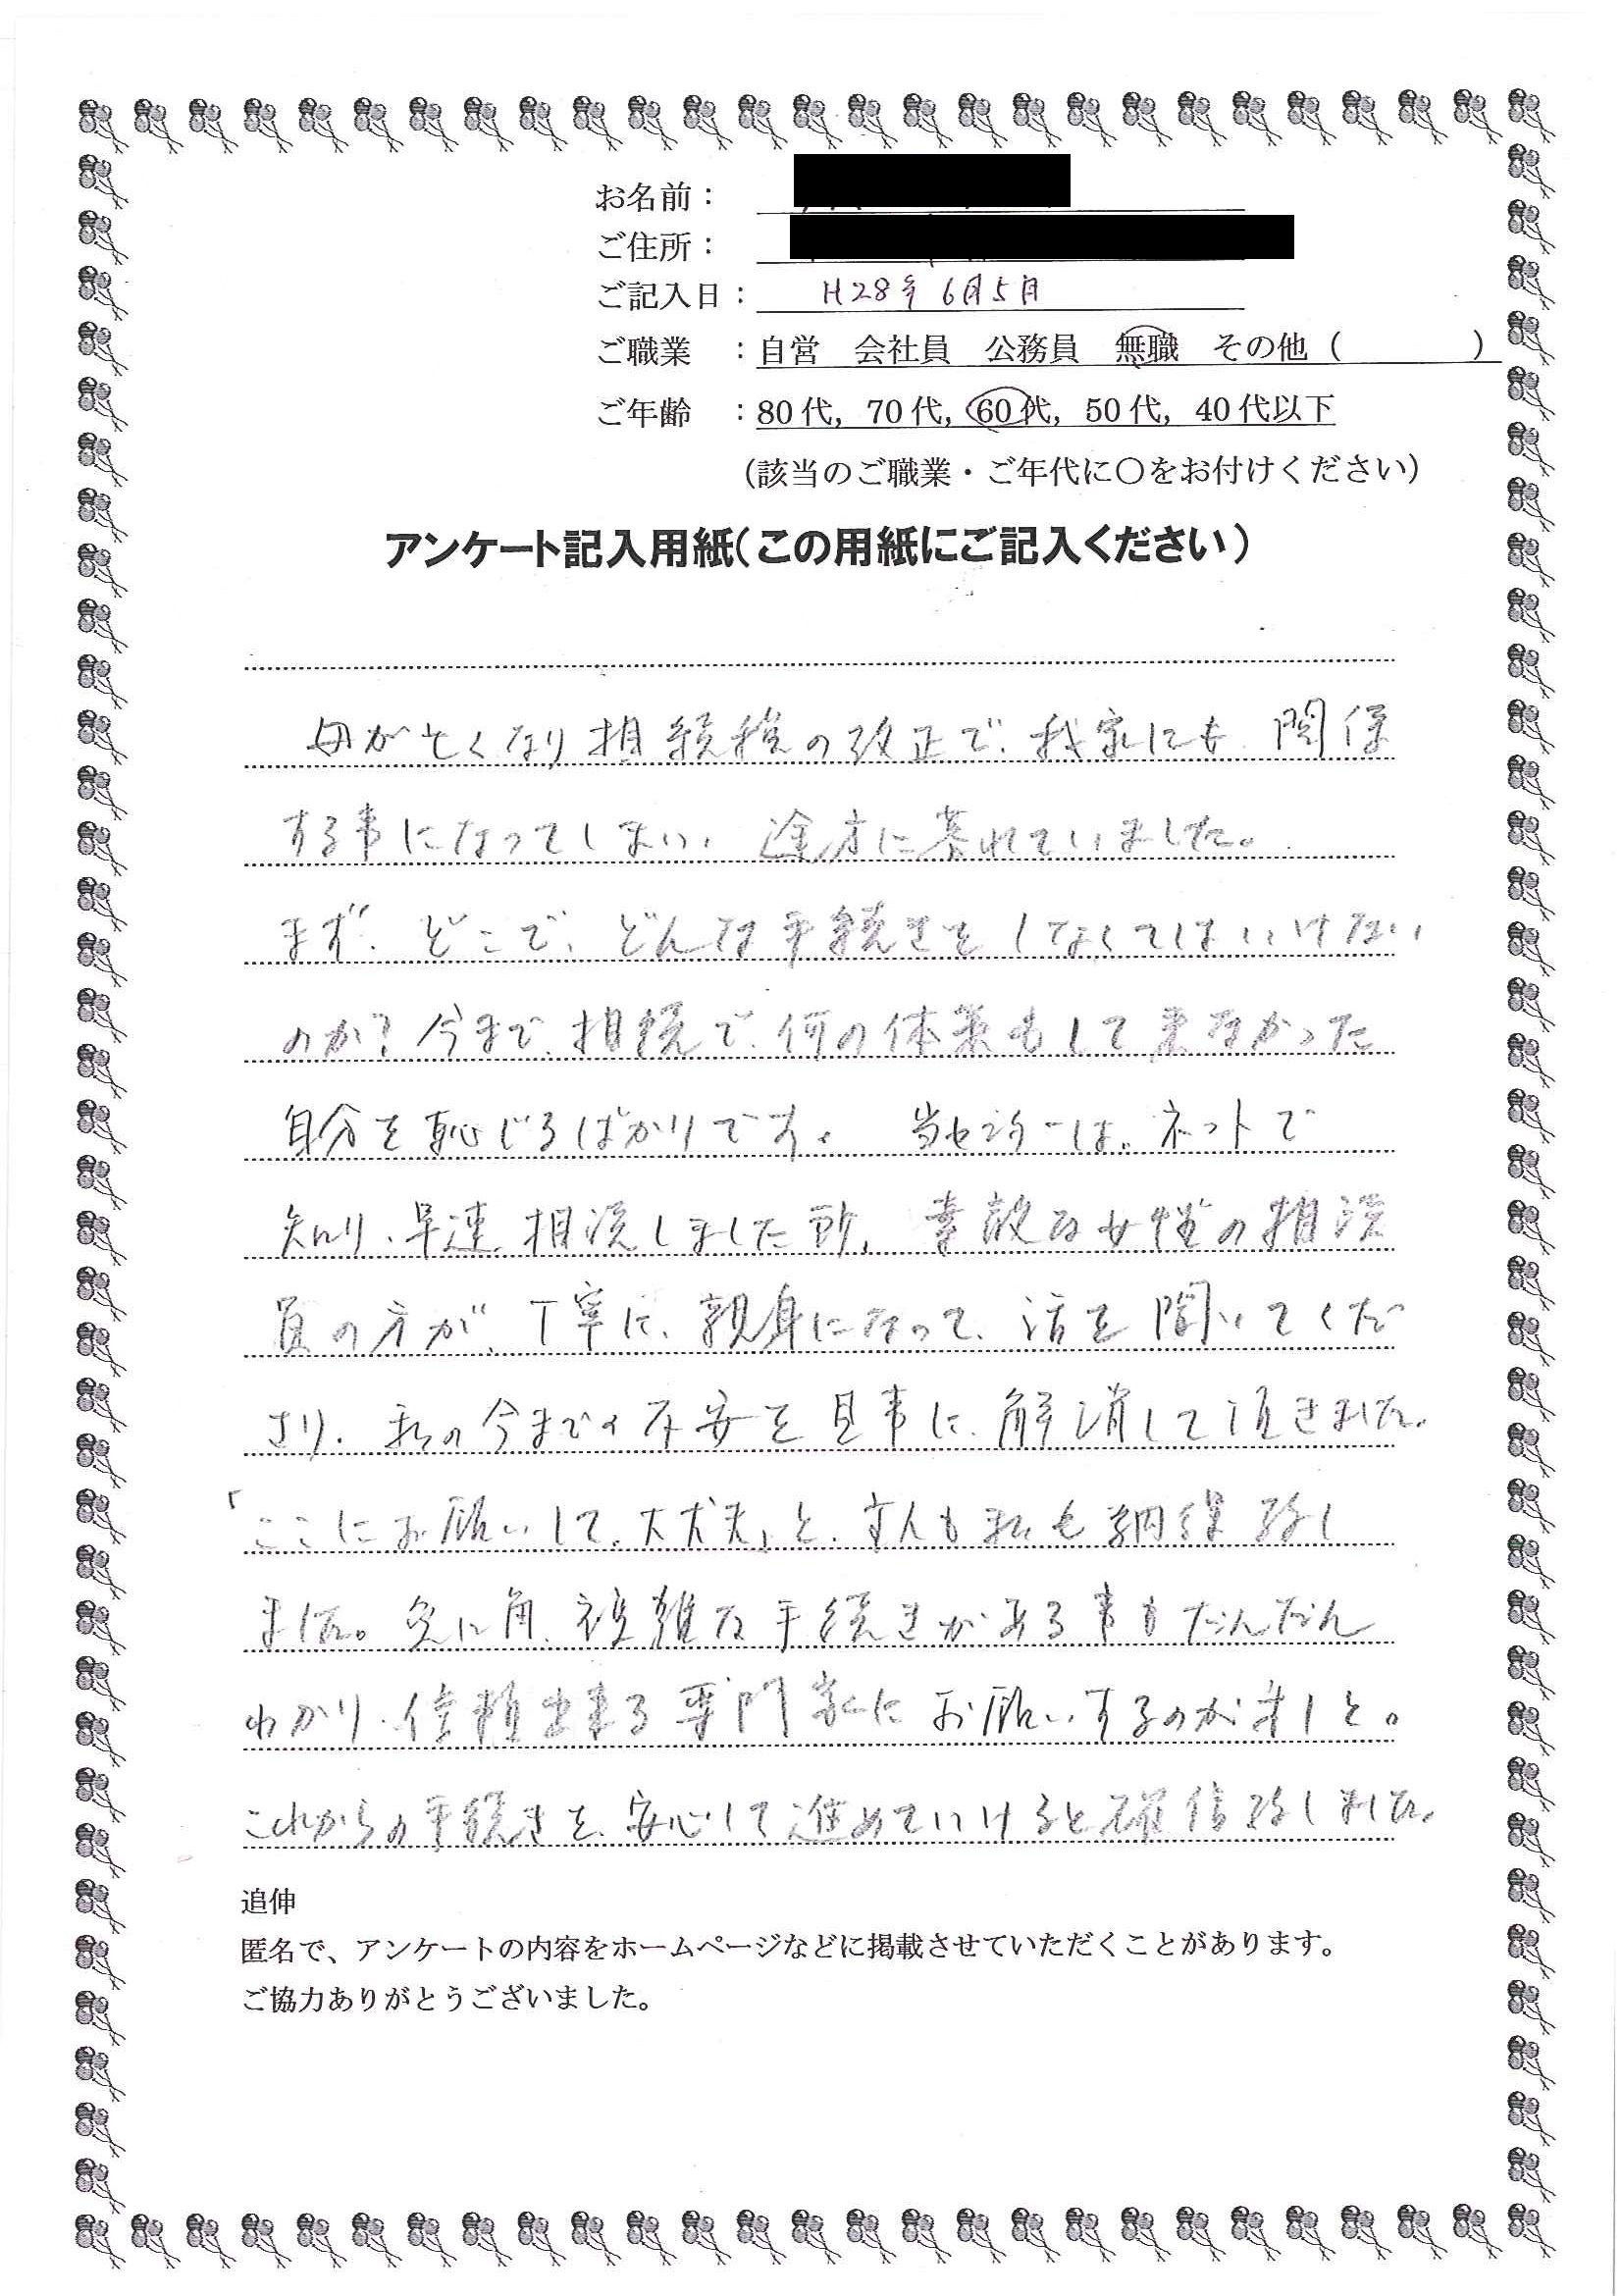 お名前：
ご住所：
ご記入日： H28年6月5日
ご職業 ：自営 会社員 公務員 無職 その他（ ）
ご年齢 ：80代，70代，60代，50代，40代以下
（該当のご職業・ご年代に〇をお付けください）
アンケート記入用紙（この用紙にご記入ください）
母が亡くなり相続税の改正で、我家にも関係
する事になってしまい、途方に暮れていました。
まず、どこで、どんな手続きをしなくてはいけない
のか？今まで、相続で、何の体策もして来なかった
自分を恥じるばかりです。 当センターは、ネットで
知り、早速、相談しました所、素敵な女性の相談
員の方が、丁寧に、親身になって、話を聞いてくだ
さり、私の今までの不安を見事に、解消して頂きました。
「ここにお願いして、大丈夫」と、主人も私も納得致し
ました。兎に角、複雑な手続きがある事もだんだん
わかり、信頼出来る専門家にお願いするのが、一と。
これからの手続きを、安心して進めていけると確信致しました。
追伸
匿名で、アンケートの内容をホームページなどに掲載させていただくことがあります。
ご協力ありがとうございました。